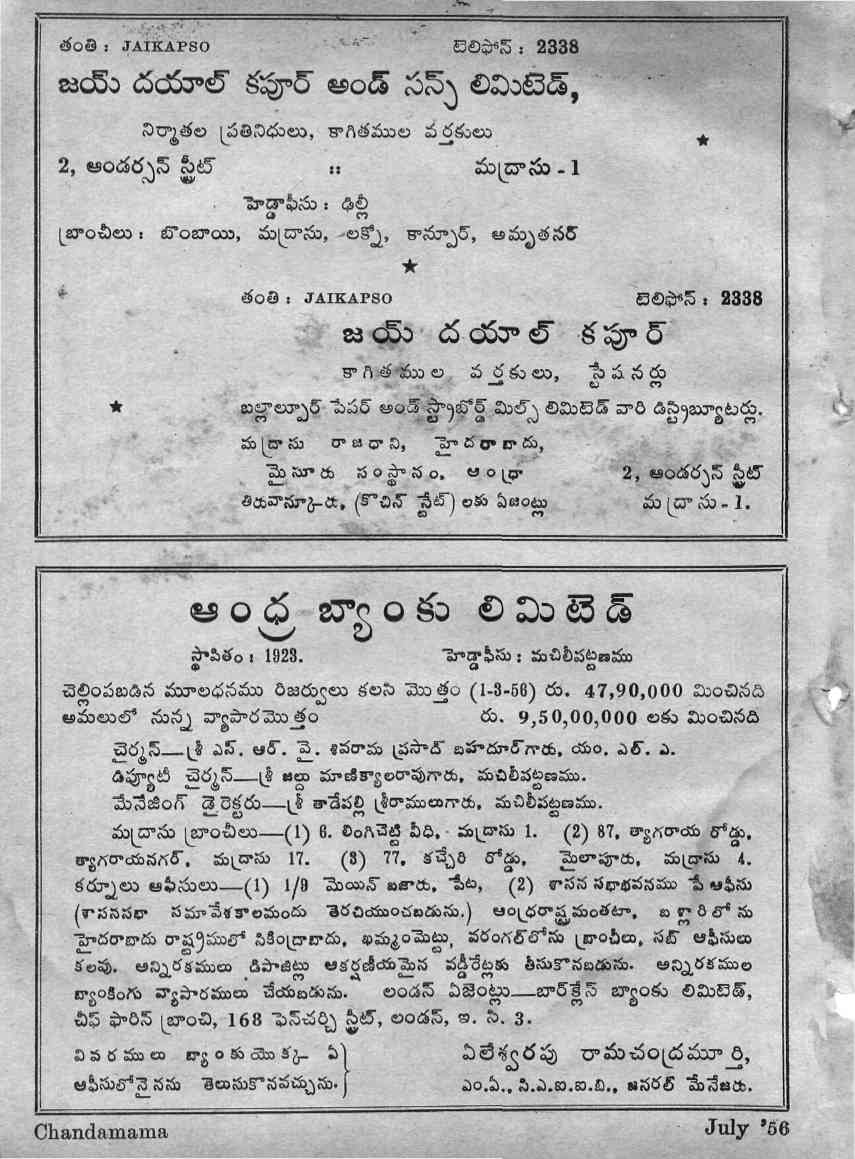 తంతి : JAIKAPSO టెలిఫోన్ : 2338
జయ్ దయాల్ కపూర్ అండ్ సన్స్ లిమిటెడ్,
నిర్మాతల ప్రతినిధులు, కాగితముల వర్తకులు
2, ఆండర్సన్ స్ట్రీట్ :: మద్రాసు - 1
హెడ్డాఫీసు : ఢిల్లీ
బ్రాంచీలు : బొంబాయి, మద్రాసు, లక్నో, కాన్పూర్, అమృతసర్
తంతి : JAIKAPSO టెలిఫోన్ : 2338
జయ్ దయాల్ కపూర్
కాగితముల వర్తకులు, స్టేషనర్లు
బల్లాల్పూర్ పేపర్ అండ్ స్ట్రాబోర్డ్ మిల్స్ లిమిటెడ్ వారి డిస్ట్రిబ్యూటర్లు.
మద్రాసు రాజధాని, హైదరాబాదు,
మైసూరు సంస్థానం, ఆంధ్రా 2, ఆండర్సన్ స్ట్రీట్
తిరువాన్కూరు, (కొచిన్ స్టేట్) లకు ఏజంట్లు మద్రాసు - 1.
ఆంధ్ర బ్యాంకు లిమిటెడ్
స్థాపితం : 1923. హెడ్డాఫీసు : మచిలీపట్టణము
చెల్లింపబడిన మూలధనము రిజర్వులు కలసి మొత్తం (1-3-56) రు. 47,90,000 మించినది
అమలులో నున్న వ్యాపారమొత్తం రు. 9,50,00,000 లకు మించినది
చైర్మన్—శ్రీ ఎస్. ఆర్. వై. శివరామ ప్రసాద్ బహదూర్‌గారు, యం. ఎల్. ఎ.
డిప్యూటీ చైర్మన్—శ్రీ జల్దు మాణిక్యాలరావుగారు, మచిలీపట్టణము.
మేనేజింగ్ డైరెక్టరు—శ్రీ తాడేపల్లి శ్రీరాములుగారు, మచిలీపట్టణము.
మద్రాసు బ్రాంచీలు—(1) 6. లింగిచెట్టి వీధి, మద్రాసు 1. (2) 87, త్యాగరాయ రోడ్డు,
త్యాగరాయనగర్, మద్రాసు 17. (3) 77, కచ్చేరి రోడ్డు, మైలాపూరు, మద్రాసు 4.
కర్నూలు ఆఫీసులు—(1) 1/9 మెయిన్ బజారు, పేట, (2) శాసన సభాభవనము పే ఆఫీసు
(శాసనసభా సమావేశకాలమందు తెరచియుంచబడును.) ఆంధ్రరాష్ట్రమంతటా, బళ్లారిలోను
హైదరాబాదు రాష్ట్రములో సికింద్రాబాదు, ఖమ్మంమెట్టు, వరంగల్‌లోను బ్రాంచీలు, సబ్ ఆఫీసులు
కలవు. అన్నిరకములు డిపాజిట్లు ఆకర్షణీయమైన వడ్డీరేట్లకు తీసుకొనబడును. అన్నిరకముల
బ్యాంకింగు వ్యాపారములు చేయబడును. లండన్ ఏజెంట్లు—బార్‌క్లేస్ బ్యాంకు లిమిటెడ్,
చీఫ్ ఫారిన్ బ్రాంచి, 168 ఫెన్‌చర్చి స్ట్రీట్, లండన్, ఇ. సి. 3.
వివరములు బ్యాంకుయొక్క ఏ ఏలేశ్వరపు రామచంద్రమూర్తి,
ఆఫీసులోనైనను తెలుసుకొనవచ్చును. ఎం.ఏ., సి.ఎ.ఐ.ఐ.బి., జనరల్ మేనేజరు.
Chandamama July '56